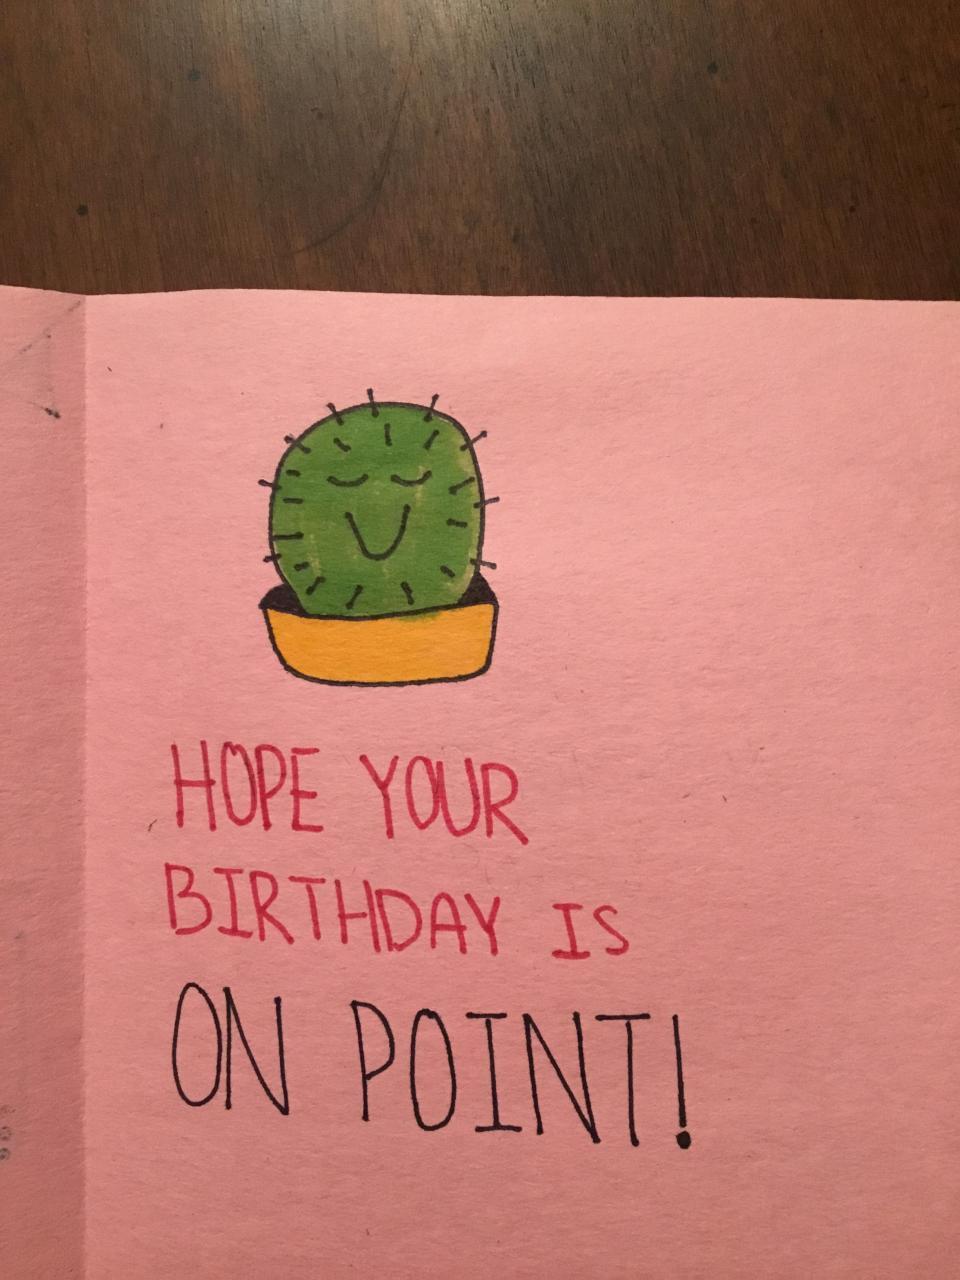 HOPE YOUR
BIRTHDAY IS
ON POINT!